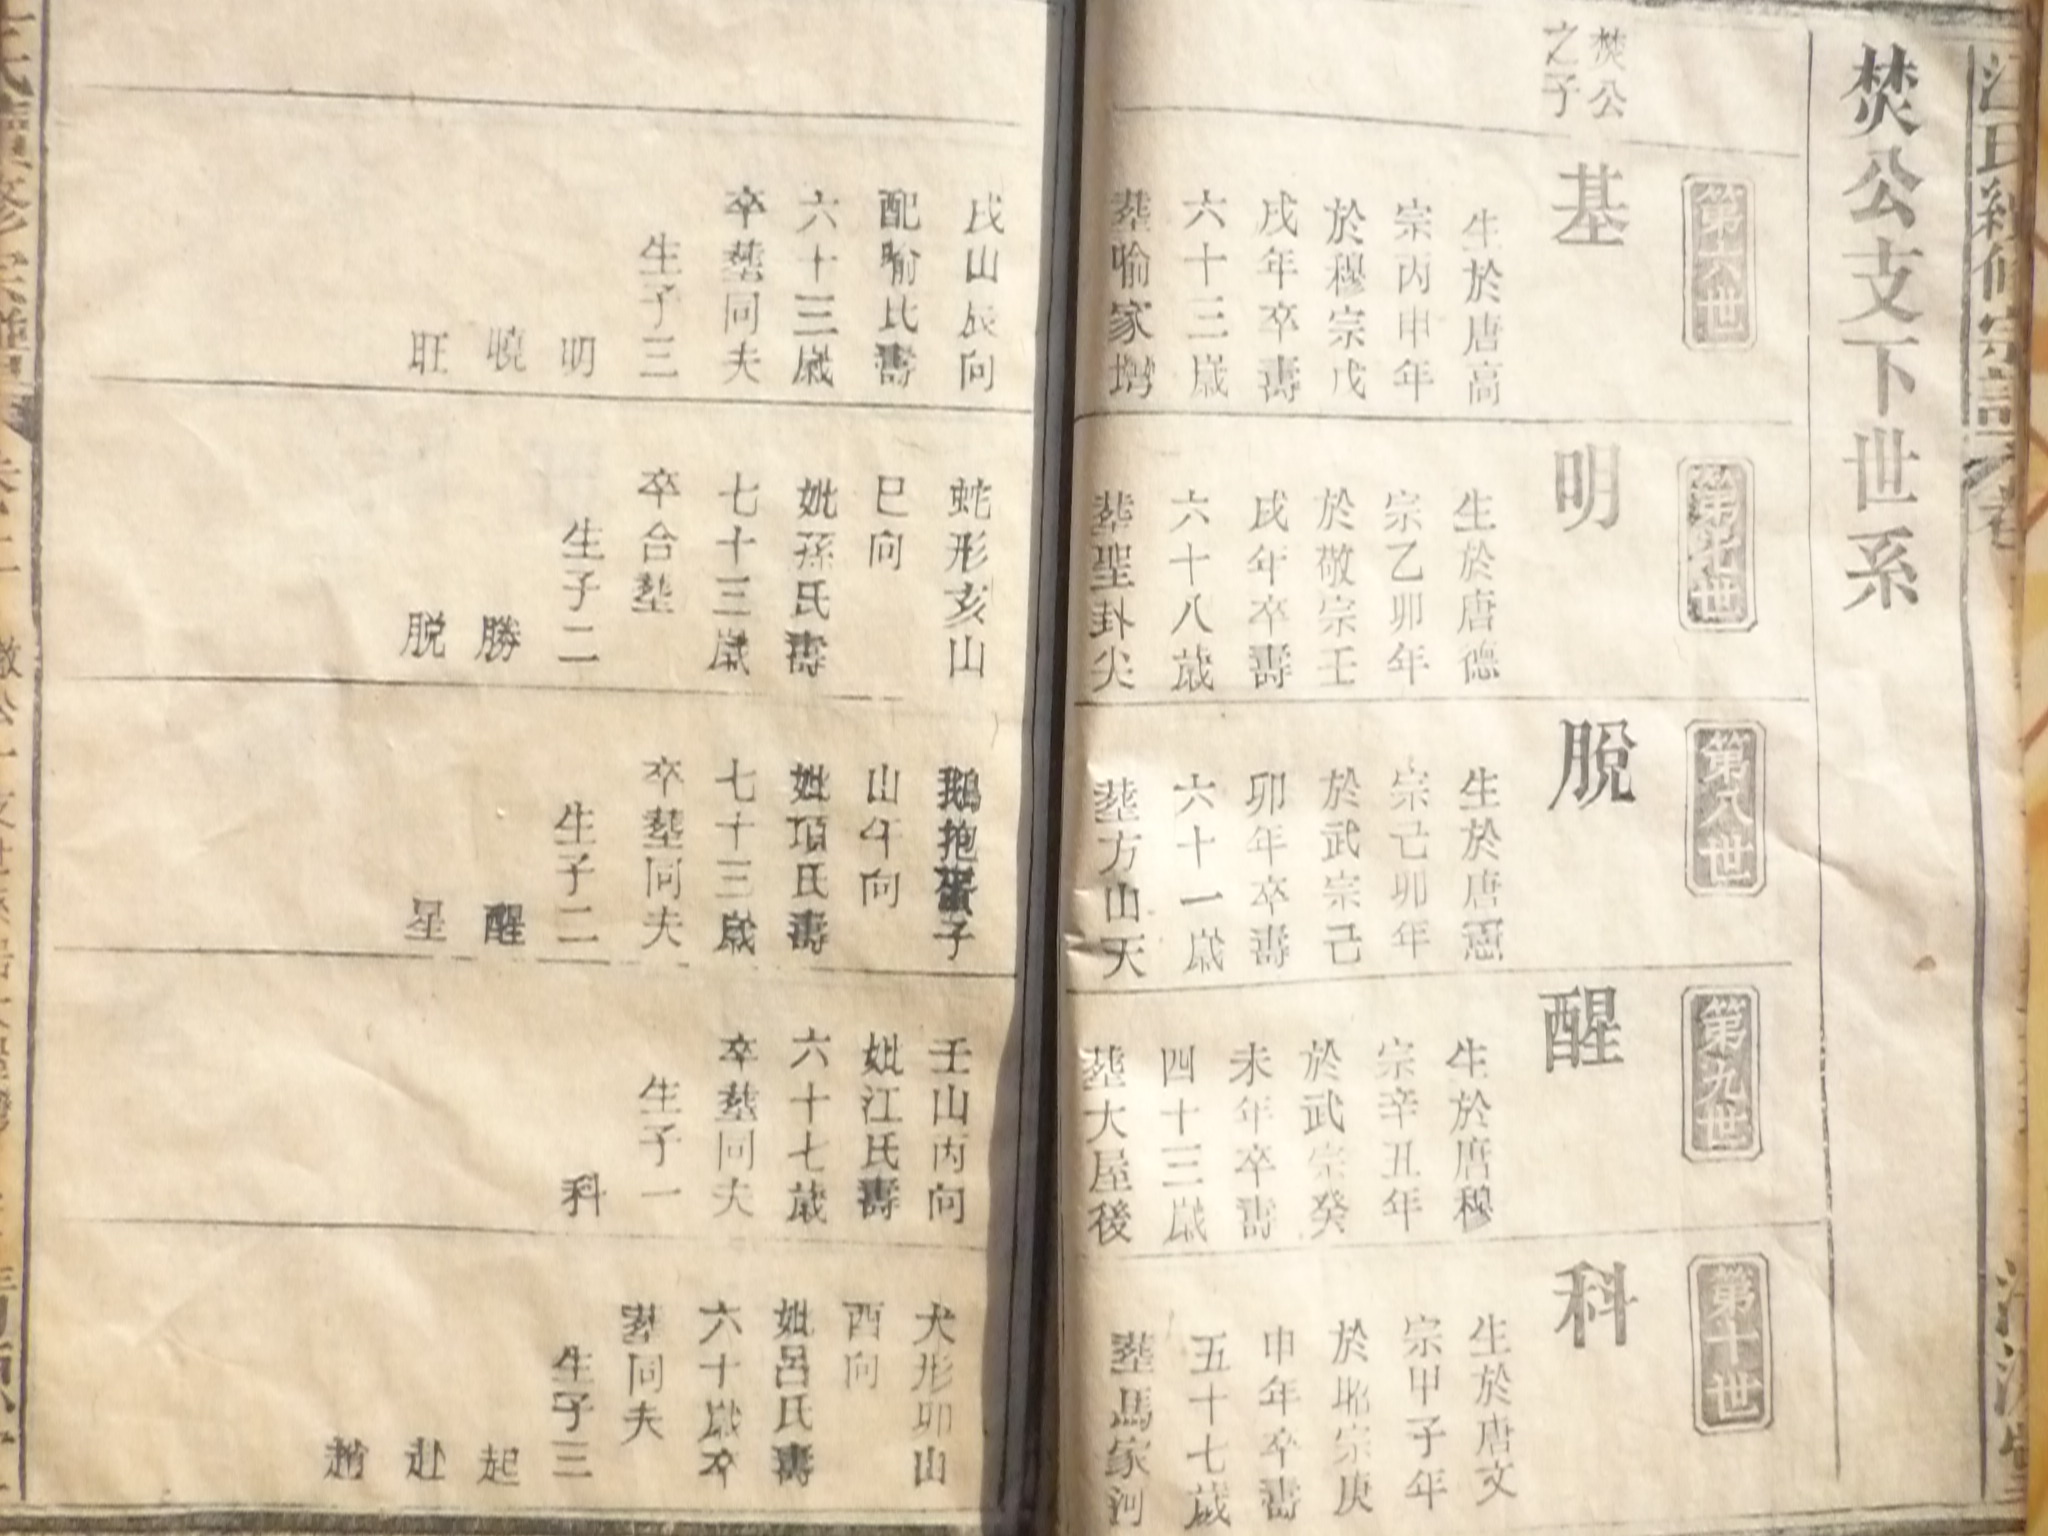 焚公支下世系
焚公
之子
第六世
基
生於唐高
宗丙申年
於穆宗戊
戌年卒壽
六十三歲
塟喻家增
戌山辰向
配喻氏壽
六十三歲
卒塟同夫
生子三
明
曉
旺
第七世
明
生於唐德
宗乙卯年
於敬宗壬
戌年卒壽
六十八歲
塟聖卦尖
蛇形亥山
巳向
妣孫氏壽
七十三歲
卒合塟
生子二
勝
脱
第八世
脫
生於唐憲
宗己卯年
於武宗己
卯年卒壽
六十一歲
塟方山天
鵝抱蛋子
山午向
妣項氏壽
七十三歲
卒塟同夫
生子二
醒
星
第九世
醒
生於唐穆
宗辛丑年
於武宗癸
未年卒壽
四十三歲
塟大屋後
壬山丙向
妣江氏壽
六十七歲
卒塟同夫
生子一
科
第十世
科
生於唐文
宗甲子年
於昭宗庚
申年卒壽
五十七歲
塟馬家河
犬形卯山
酉向
妣呂氏壽
六十歲卒
塟同夫
生子三
起
赴
趙